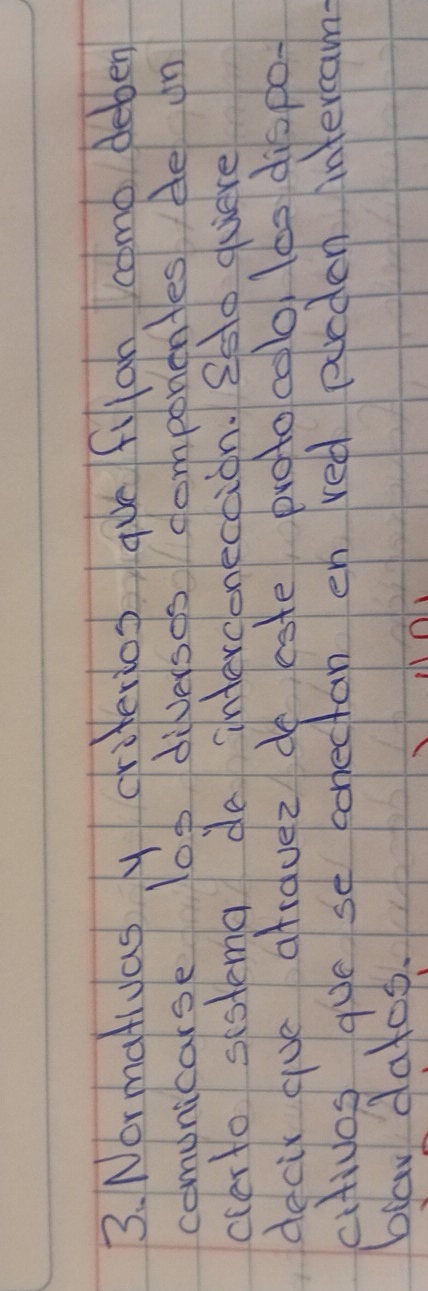 3. Normativas y criterios que fijan como deben
comunicarse los diversos componentes de un
cierto sistema de interconección. Esto quiere
decir que atravez de este protocolo, los dispo-
citivos que se conectan en red pueden intercam-
biar datos.